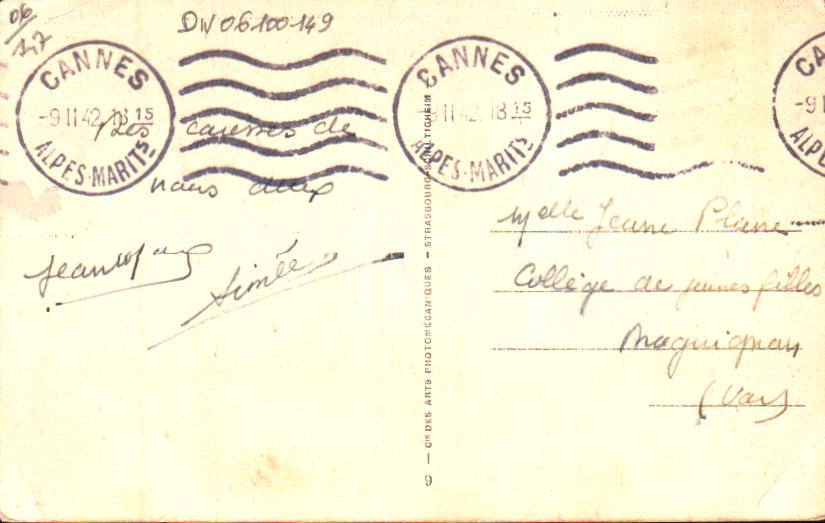 06
147
DIV 06.100-149
CANNES
-9 II 42 18 15
ALPES-MARITS
CANNES
-9 II 42 18 15
ALPES-MARITS
CA
-9 I
ALP
Des caresses de
nous deux
Aimée
9 — CIE DES ARTS PHOTOMÉCANIQUES — STRASBOURG-SCHILTIGHEIM
Melle Jeanne
Collège de jeunes filles
Draguignan
(Var)